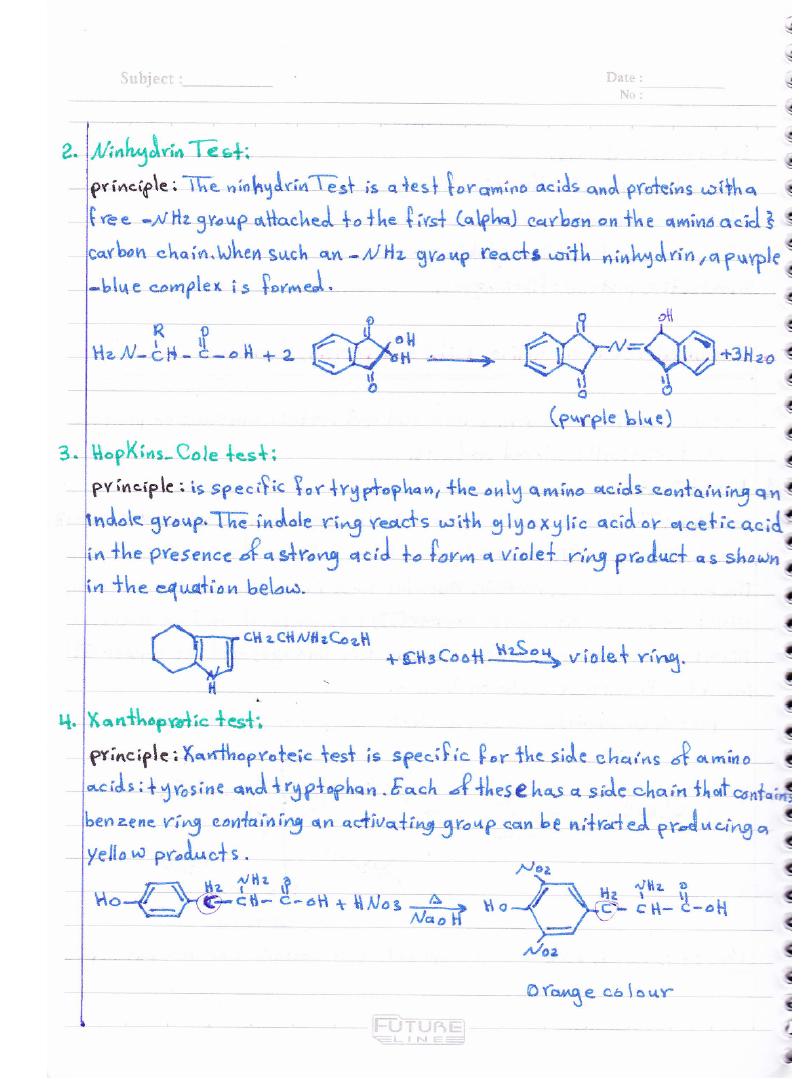 Subject :
Date :
No :
2. Ninhydrin Test:
principle: The ninhydrin Test is a test for amino acids and proteins with a
free -NH2 group attached to the first (alpha) carbon on the amino acid's
carbon chain. When such an -NH2 group reacts with ninhydrin, a purple
-blue complex is formed.
R O O OH O OH
H2N-CH-C-OH + 2 OH → -N= +3H2O
O O O
(purple blue)
3. HopKins-Cole test:
principle: is specific for tryptophan, the only amino acids containing an
indole group. The indole ring reacts with glyoxylic acid or acetic acid
in the presence of a strong acid to form a violet ring product as shown
in the equation below.
CH2CHNH2CO2H
+ CH3COOH H2SO4 → violet ring.
N
H
4. Xanthoprotic test:
principle: Xanthoproteic test is specific for the side chains of amino
acids: tyrosine and tryptophan. Each of these has a side chain that contains
benzene ring containing an activating group can be nitrated producing a
yellow products.
NO2
H2 NH2 O H2 NH2 O
HO- -C-CH-C-OH + HNO3 Δ → HO- -C-CH-C-OH
NaOH
NO2
Orange colour
FUTURE
LINE